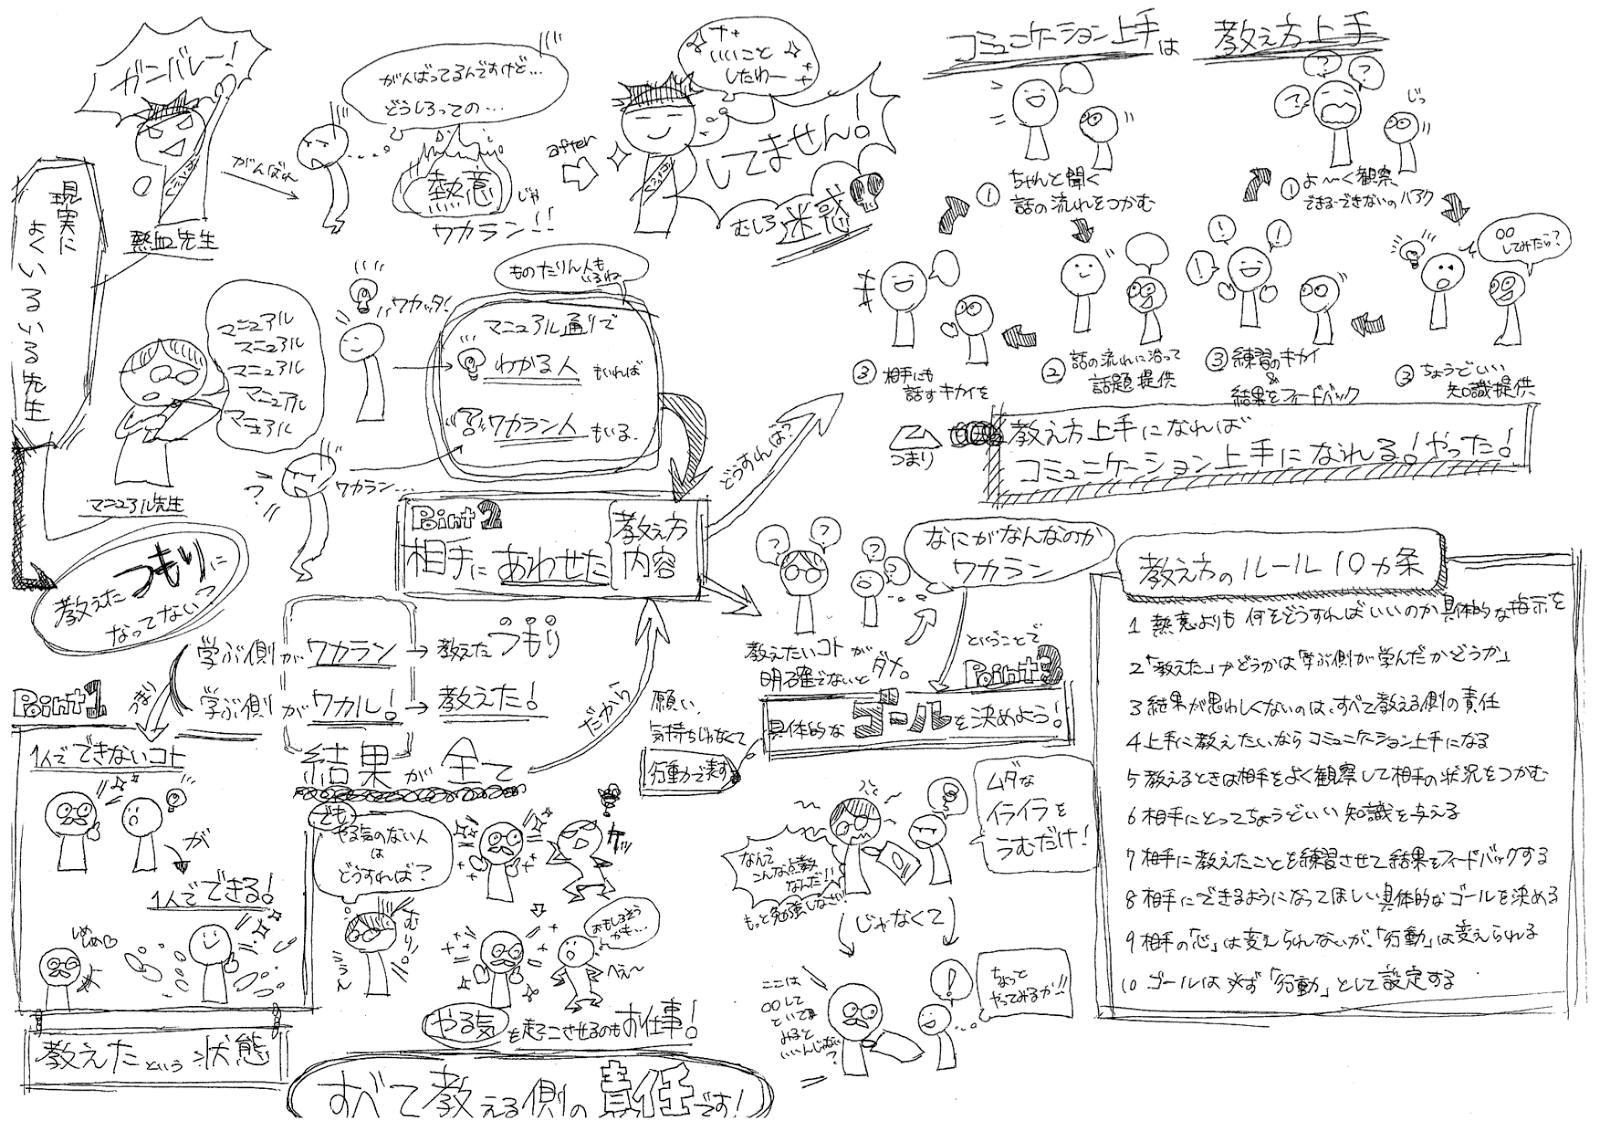 ガンバレー!
熱血先生
がんばれ
がんばってるんですけど…
どうしろっての…
熱意じゃ
ワカラン!!
after
いいこと
したわー
してません!
むしろ迷惑
現実に
よくいるいる先生
マニュアル
マニュアル
マニュアル
マニュアル
マニュアル
マニュアル先生
ワカッタ!
ワカラン…
ものたりん人も
いるね
マニュアル通りで
わかる人もいれば
ワカラン人もいる.
教えたつもりに
なってない?
Point2
相手にあわせた
教え方
内容
どうすれば?
コミュニケーション上手は 教え方上手
①ちゃんと聞く
話の流れをつかむ
②話の流れに沿って
話題提供
③相手にも
話すキカイを
じっ
①よ〜く観察、
できる・できないのハアク
〇〇
してみたら?
②ちょうどいい
知識提供
③練習のキカイ
&
結果をフィードバック
つまり
教え方上手になれば
コミュニケーション上手になれる!やった!
学ぶ側がワカラン→教えたつもり
学ぶ側がワカル!→教えた!
結果が全て
つまり
だから
Point1
1人でできないコト
が
1人でできる!
しめしめ♡
教えたという状態
でも
やる気のない人
は
どうすれば?
むり。
ケッ
おもしろそう
かも…
へぇ〜
やる気を起こさせるのもお仕事!
すべて教える側の責任です!
なにがなんなのか
ワカラン
教えたいコトが
明確でないとダメ。
ということで
Point3
具体的なゴールを決めよう!
願い、
気持ちじゃなくて
行動で表す
なんで
こんな点数
なんだ!!
もっと勉強しなさい!
ムダな
イライラを
うむだけ!
じゃなくて
ここは
〇〇して
といてみ
みると
いいんじゃない
?
ちょっと
やってみるか!!
教え方のルール10ヵ条
1 熱意よりも何をどうすればいいのか具体的な指示を
2「教えた」かどうかは「学ぶ側が学んだかどうか」
3 結果が思わしくないのは、すべて教える側の責任
4 上手に教えたいならコミュニケーション上手になる
5 教えるときは相手をよく観察して相手の状況をつかむ
6 相手にとってちょうどいい知識を与える
7 相手に教えたことを練習させて結果をフィードバックする
8 相手にできるようになってほしい具体的なゴールを決める
9 相手の「心」は変えられないが、「行動」は変えられる
10 ゴールは必ず「行動」として設定する